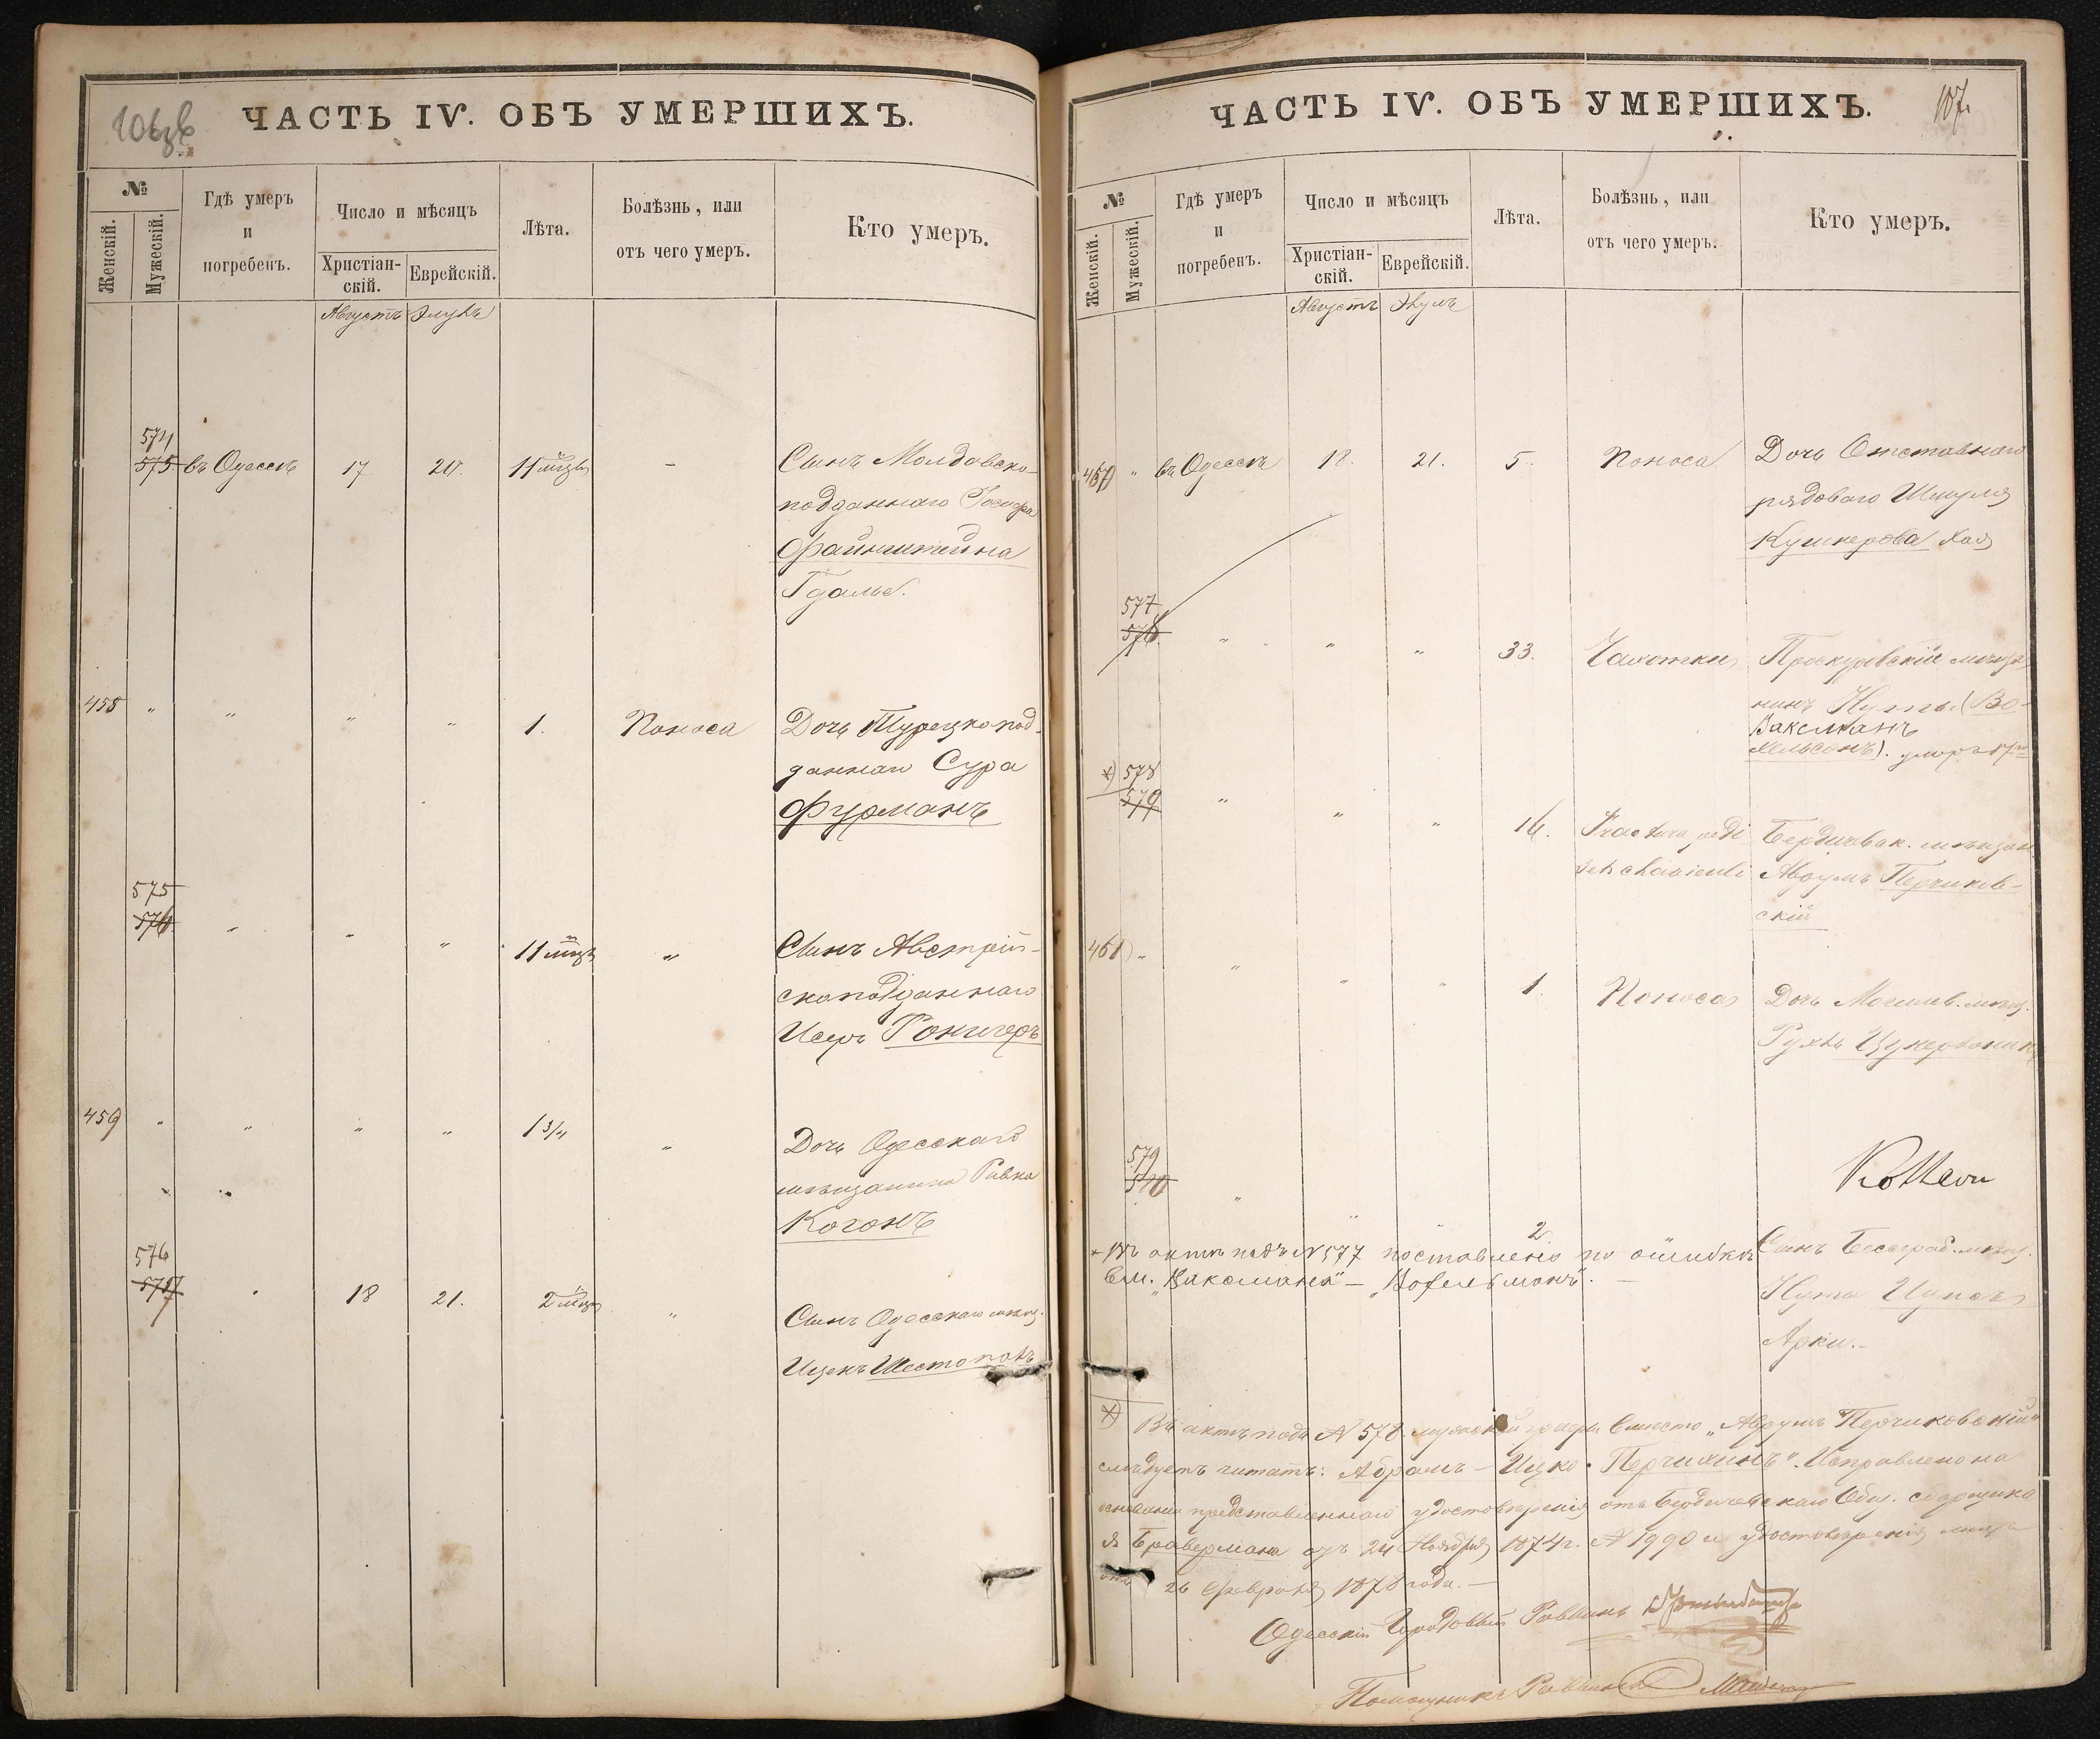 ЧАСТЬ IV. ОБЪ УМЕРШИХЪ.
№
Женскій.
Мужескій.
Гдѣ умеръ
и
погребенъ.
Число и мѣсяцъ
Христіан-
скій.
Еврейскій.
Лѣта.
Болѣзнь, или
отъ чего умеръ.
Кто умеръ.
Августъ Элулъ
574
575 въ Одессѣ 17 20. 11 мѣсц. – Сынъ Молдавско-
подданнаго
Файнштейна
Гдалье.
458 " " " " 1. Поноса Дочь Турецкопод-
даннаго Сура
Фурманъ
575
576 " " " 11 мѣсц. " Сынъ Австрій-
скоподданнаго
Исеръ Ронигеръ
459 " " " " 1 3/4 " Дочь Одесскаго
мѣщанина Ривка
Коганъ
576
577 " 18 21. 2 мѣсц. " Сынъ Одесскаго мѣщ.
Ицекъ Шестопалъ
ЧАСТЬ IV. ОБЪ УМЕРШИХЪ.
107.
№
Женскій.
Мужескій.
Гдѣ умеръ
и
погребенъ.
Число и мѣсяцъ
Христіан-
скій.
Еврейскій.
Лѣта.
Болѣзнь, или
отъ чего умеръ.
Кто умеръ.
Августъ Элулъ
460 " въ Одессѣ 18. 21. 5. Поноса Дочь Отставнаго
рядоваго Шмуля
Кушнерова Хая
577
578 " " " 33. Чахотки Проскуровскій мѣща-
нинъ
Ваксманъ
*) 578
579 " " " 16. Fractura pedi Бердичевск. мѣщан.
Аврумъ Перчиков-
скій
461 " " " " 1. Поноса Дочь Могилев. мѣщ.
Рухль Цукерваникъ
579
" " " 2 Сынъ Бессараб. мѣщ.
Нута
Арки.
* Въ актѣ подъ № 577 поставлено по ошибкѣ
вм. „Ваксмана" –
*) Въ актѣ подъ № 578 мужской графы вмѣсто „Аврумъ Перчиковскій"
слѣдуетъ читать: Абрамъ – Ицко Перчихинъ". Исправлено на
основаніи представленнаго удостовѣренія отъ Бердичевскаго Общ. сборщика
Бравермана отъ 24 Ноября 1874 г. № 1990 и удостовѣренія
26 Февраля 1878 года. –
Одесскій Городовой Раввинъ
Помощникъ Раввина